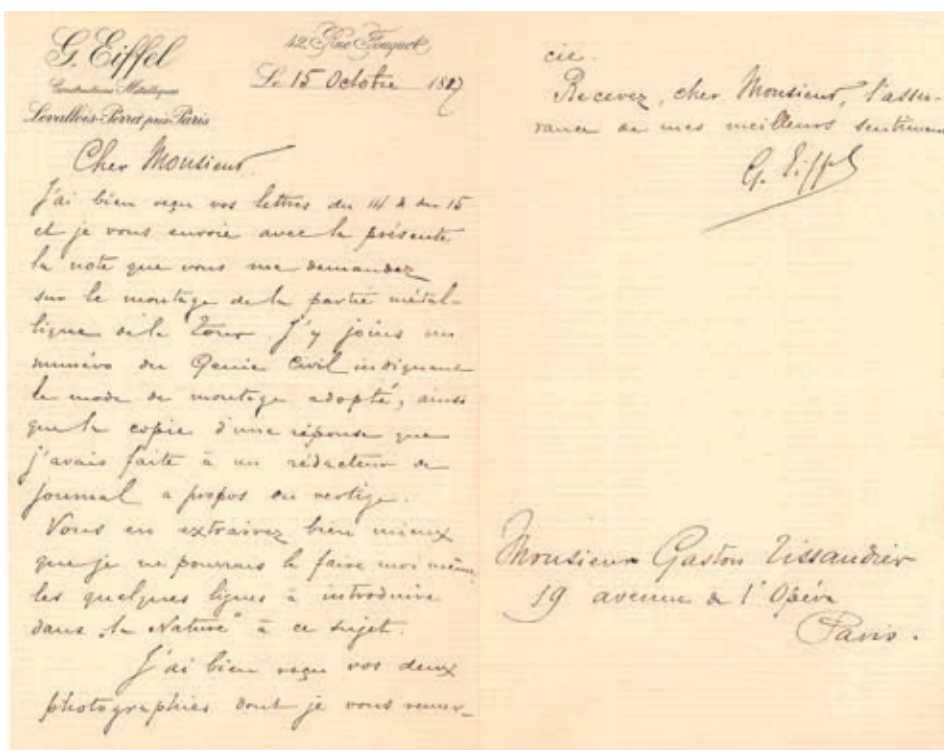 G. Eiffel
Constructions Métalliques
Levallois-Perret près Paris
42 Rue Fouquet
Le 15 Octobre 1887
Cher Monsieur
J'ai bien reçu vos lettres du 14 & du 15
et je vous envoie avec la présente
la note que vous me demandez
sur le montage de la partie métal-
lique de la Tour. J'y joins un
numéro du Genie Civil indiquant
le mode de montage adopté, ainsi
que la copie d'une réponse que
j'avais faite à un rédacteur de
journal a propos du vertige.
Vous en extrairez bien mieux
que je ne pourrais le faire moi même
les quelques lignes à introduire
dans "la Nature" à ce sujet.
J'ai bien reçu vos deux
photographies dont je vous remer-
cie.
Recevez, cher Monsieur, l'assu-
rance de mes meilleurs sentiments
G. Eiffel
Monsieur Gaston Tissandier
19 avenue de l'Opéra
Paris.